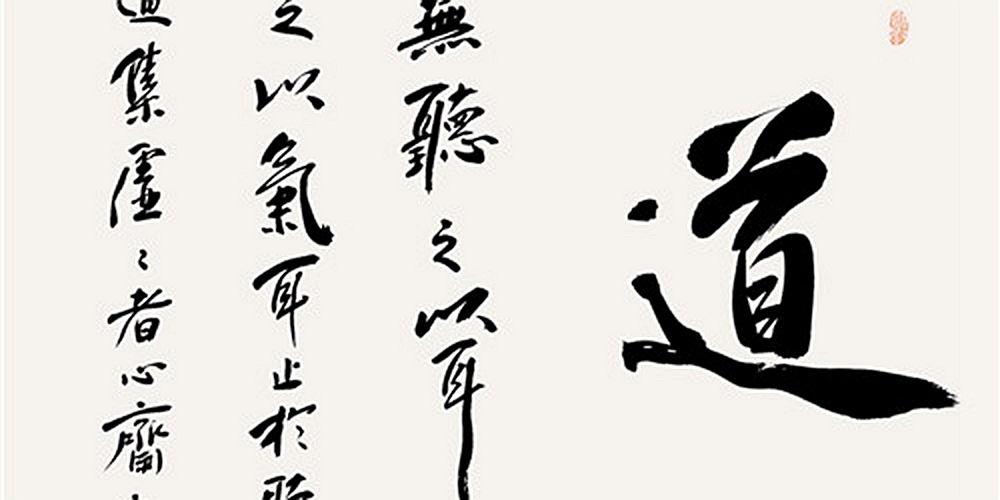 道
無聽之以耳
之以氣耳止於聽
道集虛〻者心齋